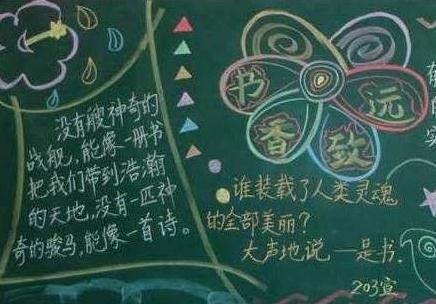 没有艘神奇的
战舰，能像一册书
把我们带到浩瀚
的天地，没有一匹神
奇的骏马，能像一首诗。
书香致远
谁装载了人类灵魂
的全部美丽？
大声地说 —是书.
203宣